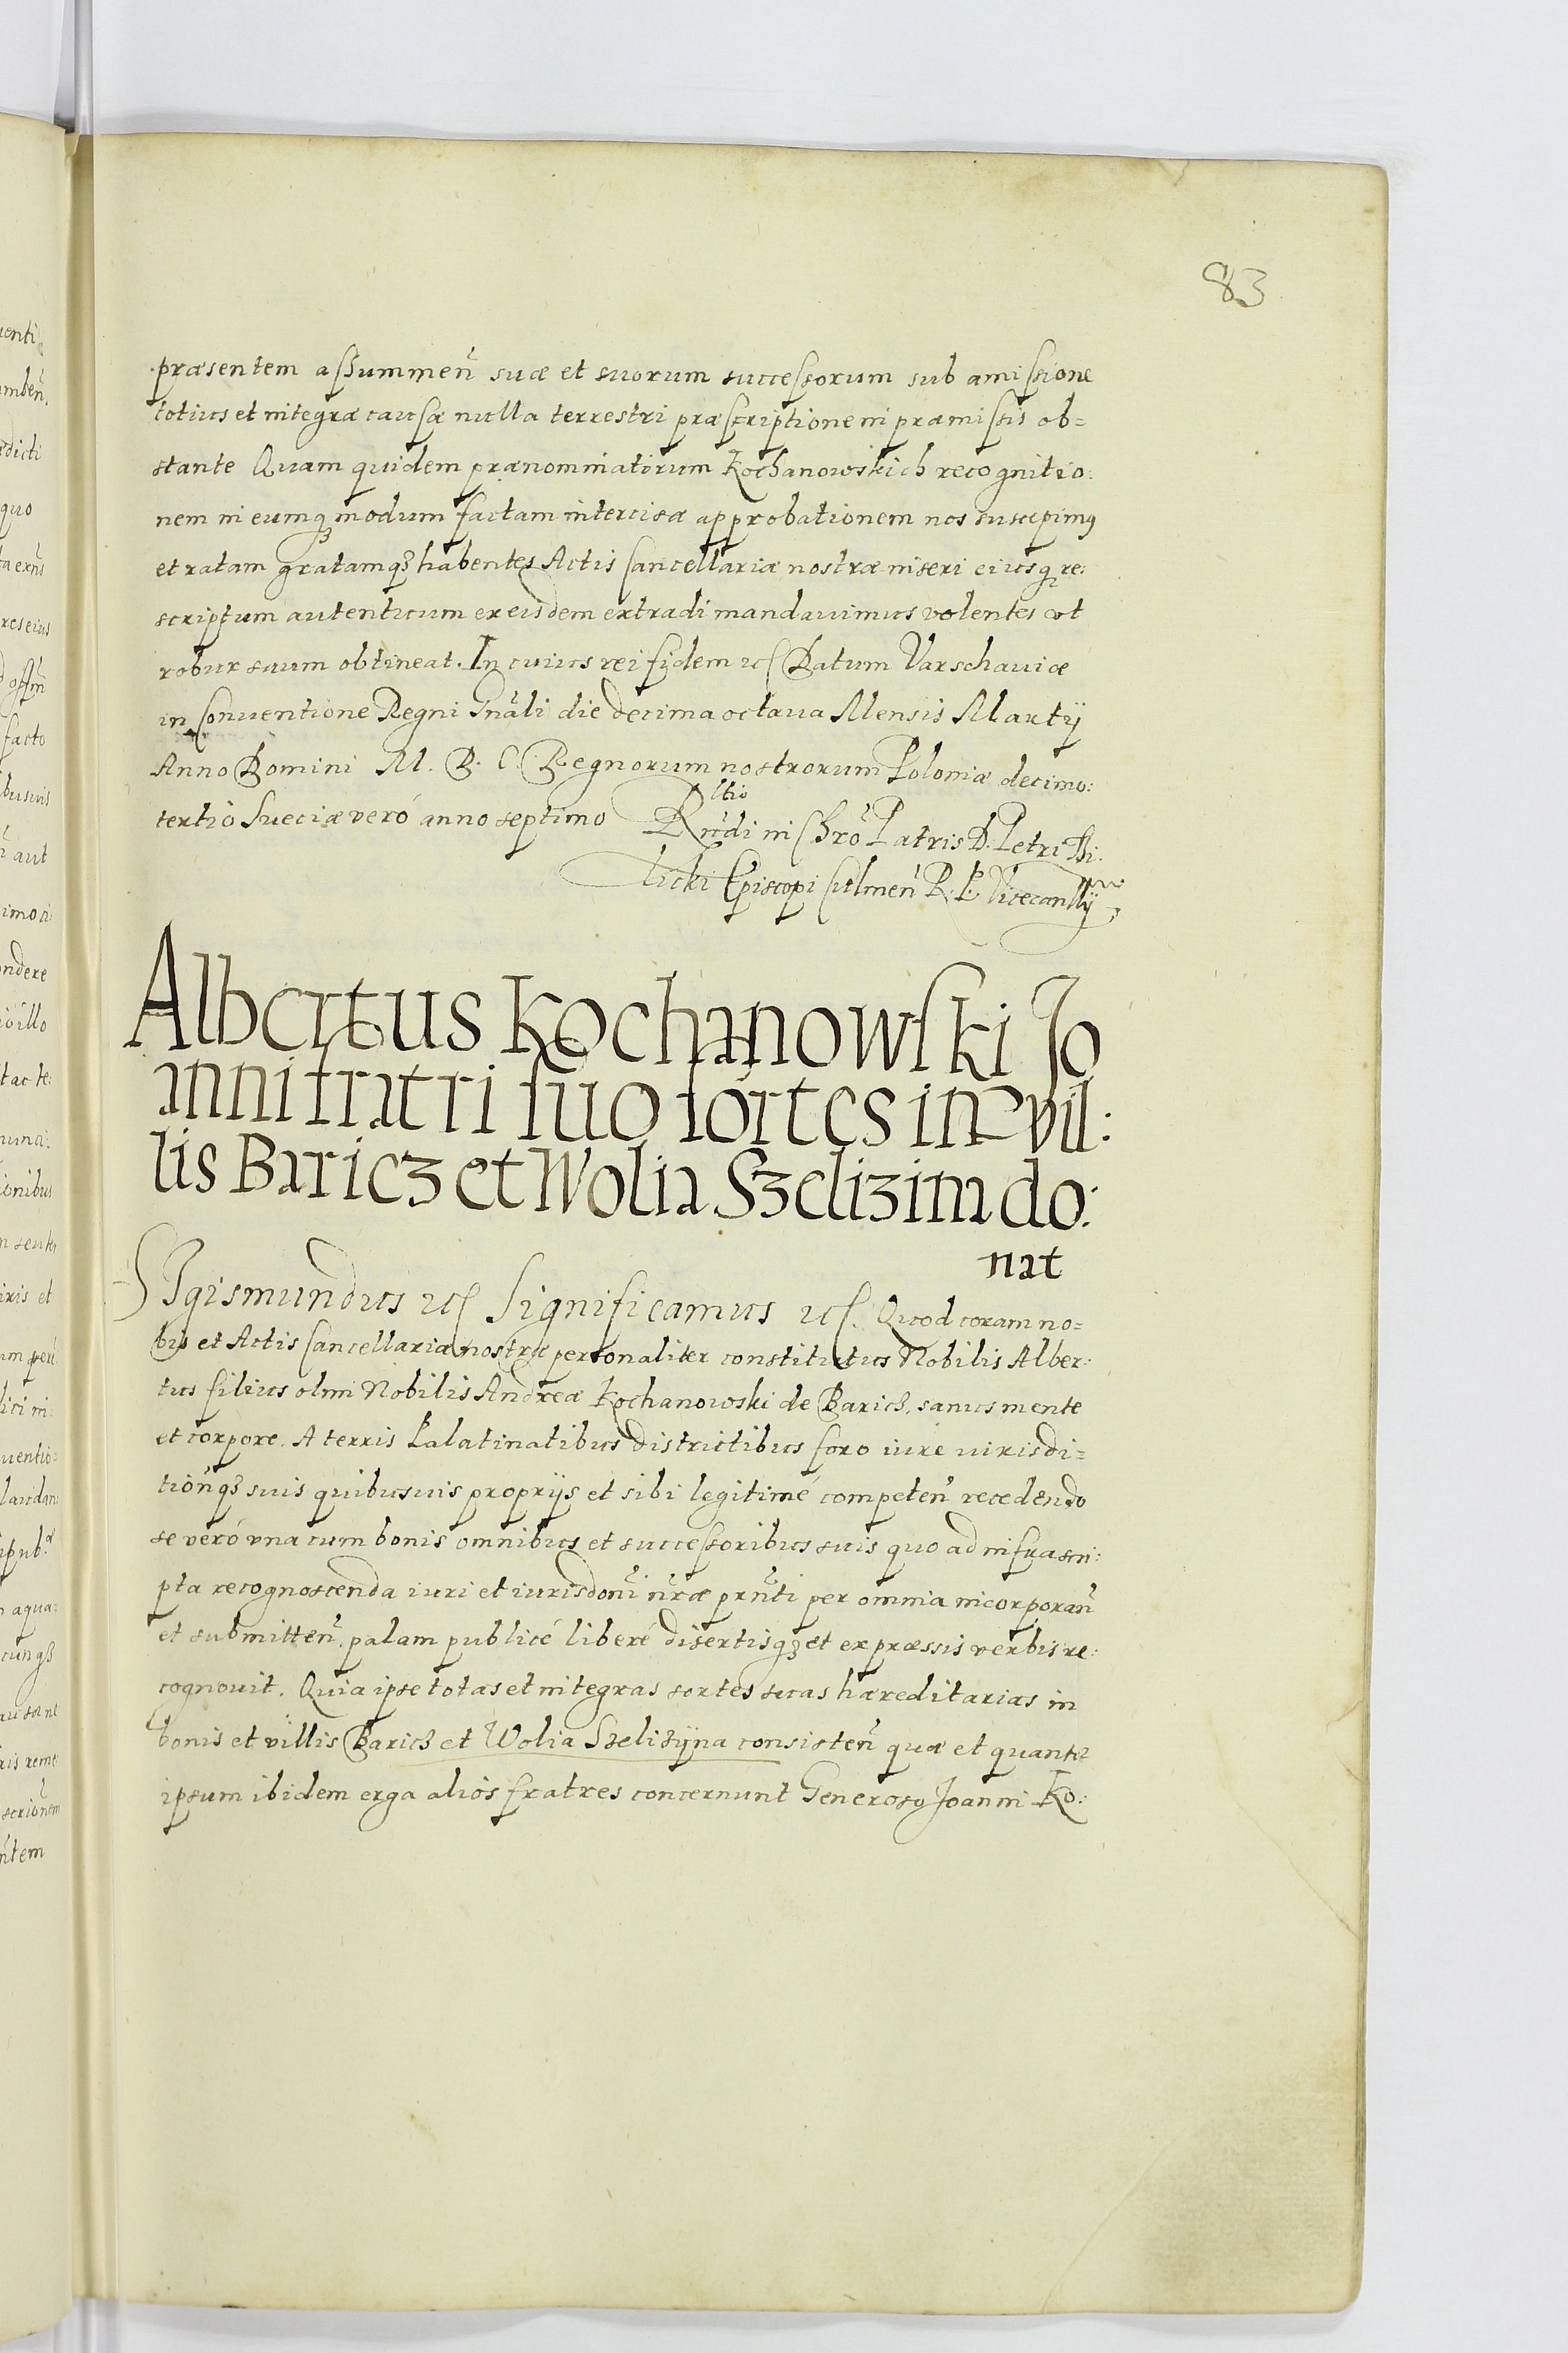 83
præsentem assummen̄ suæ et suorum successorum sub amissione
totius et integræ causæ nulla terrestri præscriptione in præmissis ob=
stante Quam quidem prænominatorum Kochanowskich recognitio:
nem in eumq3 modum factam intercisæ approbationem nos suscepimus
et ratam gratamq3 habentes Actis Cancellariæ nostræ inseri eiusq3 re:
scriptum autenticum ex eisdem extradi mandauimus volentes vt
robur suum obtineat. In cuius rei fidem etc Datum Varschauiæ
in Conuentione Regni Gn̄ali die decima octaua Mensis Martij
Anno Domini M. D. C. Regnorum nostrorum Poloniæ decimo:
tertio Sueciæ veró anno septimo Rn̄di in Chr̄o Patris D. Petri Ti:
licki Episcopi Culmen̄ R. P. Vicecanllrij
Albertus Kochanowski Jo
anni fratri suo sortes in vil:
lis Baricz et Wolia Szelizim do:
nat
SIgismundus etc Significamus etc. Quod coram no=
bis et Actis Cancellariæ nostræ personaliter constitutus Nobilis Alber:
tus filius olim Nobilis Andreæ Kochanowski de Baricz, sanus mente
et corpore. A terris Palatinatibus districtibus foro iure iurisdi=
tion̄q3 suis quibusuis proprijs et sibi legitimé competen̄ recedendo
se veró vna cum bonis omnibus et successoribus suis quo ad infrascri:
pta recognoscenda iuri et iurisdon̄i nr̄æ prn̄ti per omnia incorporan̄
et submitten̄. palam publicé liberé disertisq3 et expræssis verbis re:
cognouit. Quia ipse totas et integras sortes suas hæreditarias in
bonis et villis Baricz et Wolia Szelizÿna consisten̄ quæ et quantæ
ipsum ibidem erga alios fratres concernunt Generoso Joanni Ko: